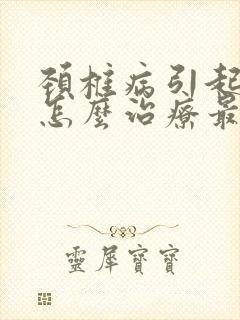 頸椎病引起
怎麼治療最
靈犀寶寶